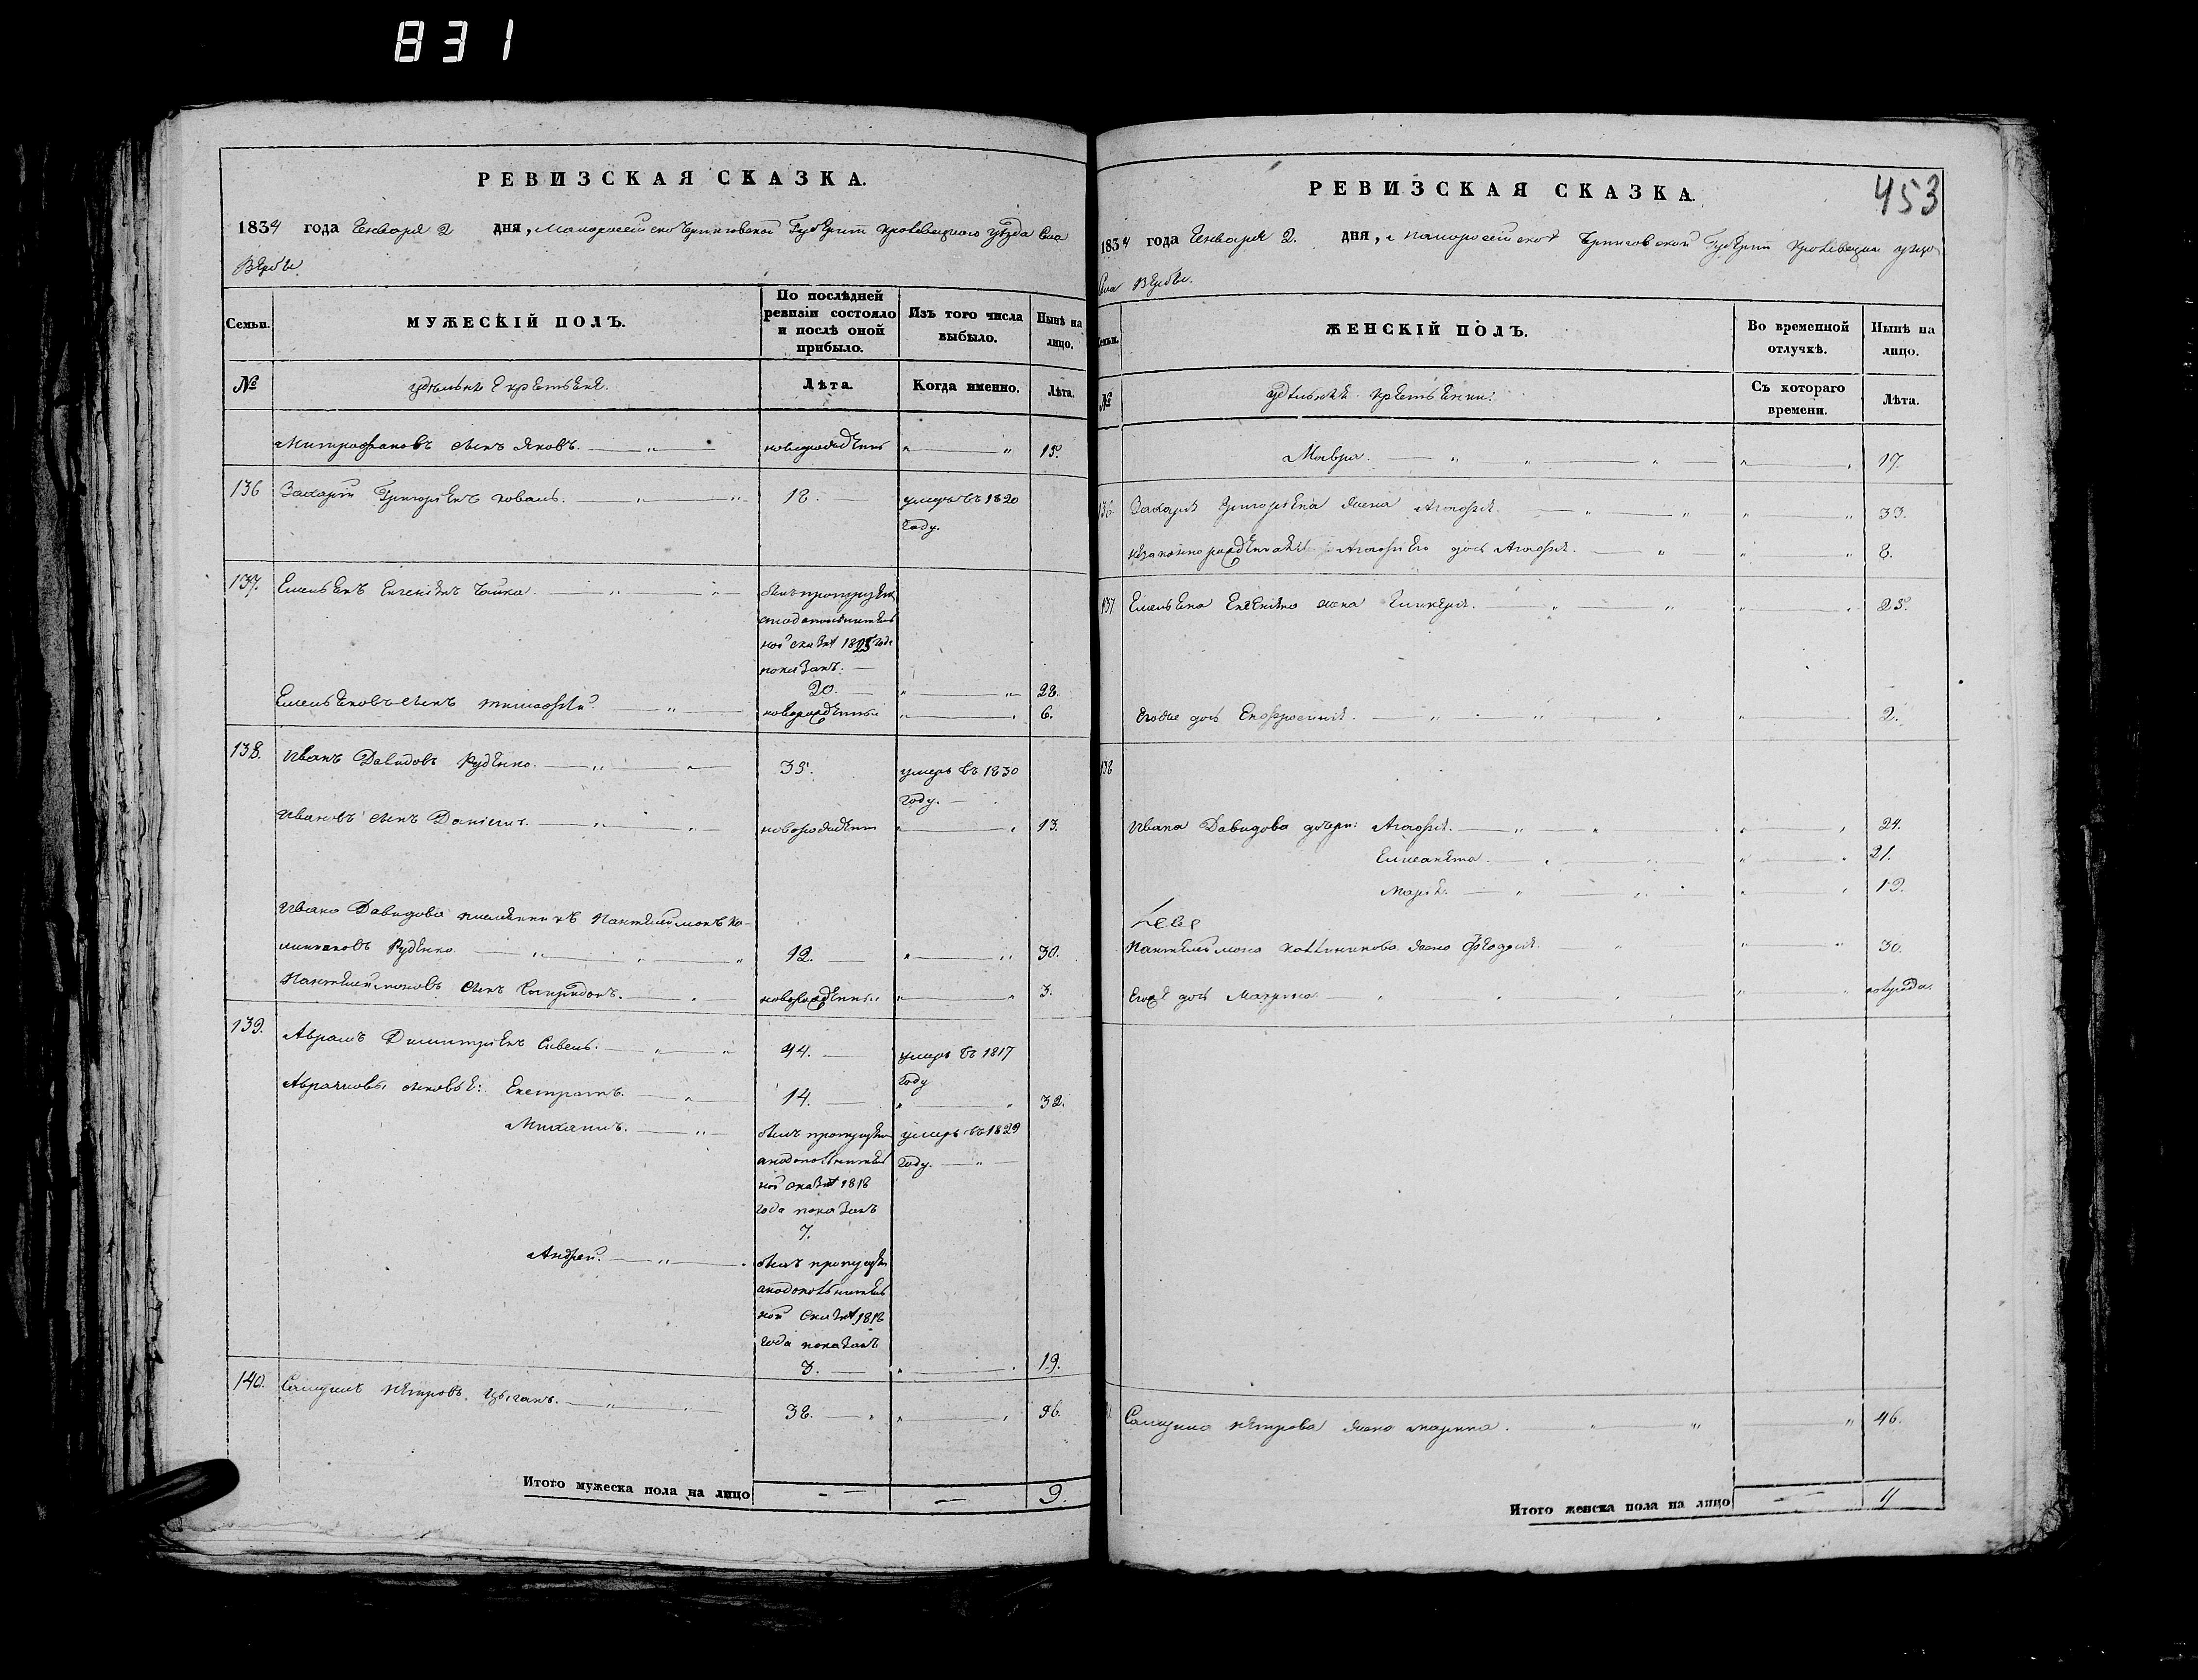 831
РЕВИЗСКАЯ СКАЗКА.
1834 года Генваря 2 дня, Малоросейской Черниговской Губернiи Кролевецкого уѣзда Села
Вербы
Семьи.
МУЖЕСКІЙ ПОЛЪ.
По послѣдней ревизіи состояло и послѣ оной прибыло.
Изъ того числа выбыло.
Нынѣ на лицо.
№
удѣльные крестьяне.
Лѣта.
Когда именно.
Лѣта.
Митрофановъ сынъ Яковъ. новорожденъ 15.
136 Захарій Григорьевъ Коваль. 18. умеръ въ 1820
году.
137. Емельянъ Евгеніевъ Чайка. былъ пропущенъ
а подополнитель
ной сказкѣ 1825 года
показанъ.
20. 28.
Емельяновъ сынъ Тимофѣй. новорожденный 6.
138. Иванъ Давидовъ Руденко. 35. умеръ въ 1830
году.
Ивановъ сынъ Даніилъ. новорожденъ 13.
Ивана Давидова племянникъ Пантелеймонъ Ка-
линиковъ Руденко 12. 30.
Пантелеймоновъ сынъ Спиридонъ. новорожденный 3.
139. Аврамъ Димитріевъ Сивень. 44. умеръ въ 1817
году
Аврамовы сыновья: Евстратъ. 14. 32.
Михаилъ. былъ пропущенъ умеръ въ 1829
а подополнитель году.
ной сказкѣ 1818
года показанъ
7.
Андрей. былъ пропущен
а подополнитель
ной сказкѣ 1818
года показанъ
3. 19.
140. Самуилъ Петровъ Цыганъ. 38. 56.
Итого мужеска пола на лицо 9.
453
РЕВИЗСКАЯ СКАЗКА.
1834 года Генваря 2. дня, Малоросейской Черниговской Губерніи Кролевецка уѣзда
Села Вербы.
Семьи.
ЖЕНСКІЙ ПОЛЪ.
Во временной отлучкѣ.
Нынѣ на лицо.
№
удѣльные крестьянки.
Съ котораго времени.
Лѣта.
Мавра. 17.
136. Захарія Григорьева жена Агафія. 33.
незаконнорожденная Агафіею дочь Агафія. 8.
137 Емельяна Евгеніева жена Гликерія. 25.
дочь Евфросинія. 2.
138
Ивана Давидова дочери: Агафія. 24.
Елисавета. 21.
Марія. 19.
Пантелеймона Калиникова жена Феодосія. 30.
Егоже дочь Матрона полугода.
Самуила Петрова жена Марина. 46.
Итого женска пола на лицо 11